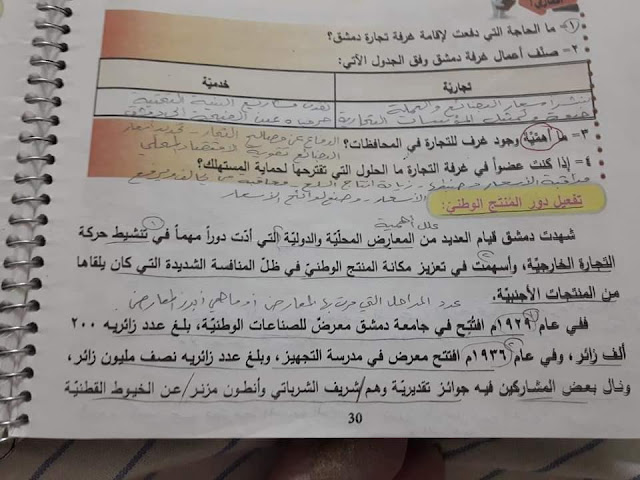 ١- ما الحاجة التي دفعت لإقامة غرفة تجارة دمشق؟
٢- صنّف أعمال غرفة دمشق وفق الجدول الآتي:
تجاريّة خدميّة
٣- ما أهميّة وجود غرف للتجارة في المحافظات؟ الدفاع عن مصالح التجار
٤- إذا كنت عضواً في غرفة التجارة ما الحلول التي تقترحها لحماية المستهلك؟
مراقبة الأسعار
تفعيل دور المُنتج الوطنيّ:
علل أهمية
شهدت دمشق قيام العديد من المعارض المحلّية والدوليّة التي أدّت دوراً مهماً في تنشيط حركة
التجارة الخارجيّة، وأسهمت في تعزيز مكانة المنتج الوطنيّ في ظلّ المنافسة الشديدة التي كان يلقاها
من المنتجات الأجنبيّة.
عدد المراحل التي مرت بها المعارض أو ماهي أبرز المعارض
ففي عام ١٩٢٩م افتُتح في جامعة دمشق معرضٌ للصناعات الوطنيّة، بلغ عدد زائريه ٢٠٠
ألف زائر، وفي عام ١٩٣٦م افتتح معرض في مدرسة التجهيز، وبلغ عدد زائريه نصف مليون زائر،
ونال بعض المشاركين فيه جوائز تقديريّة وهم/ شريف الشرباتي وأنطون مزنر/ عن الخيوط القطنيّة
30